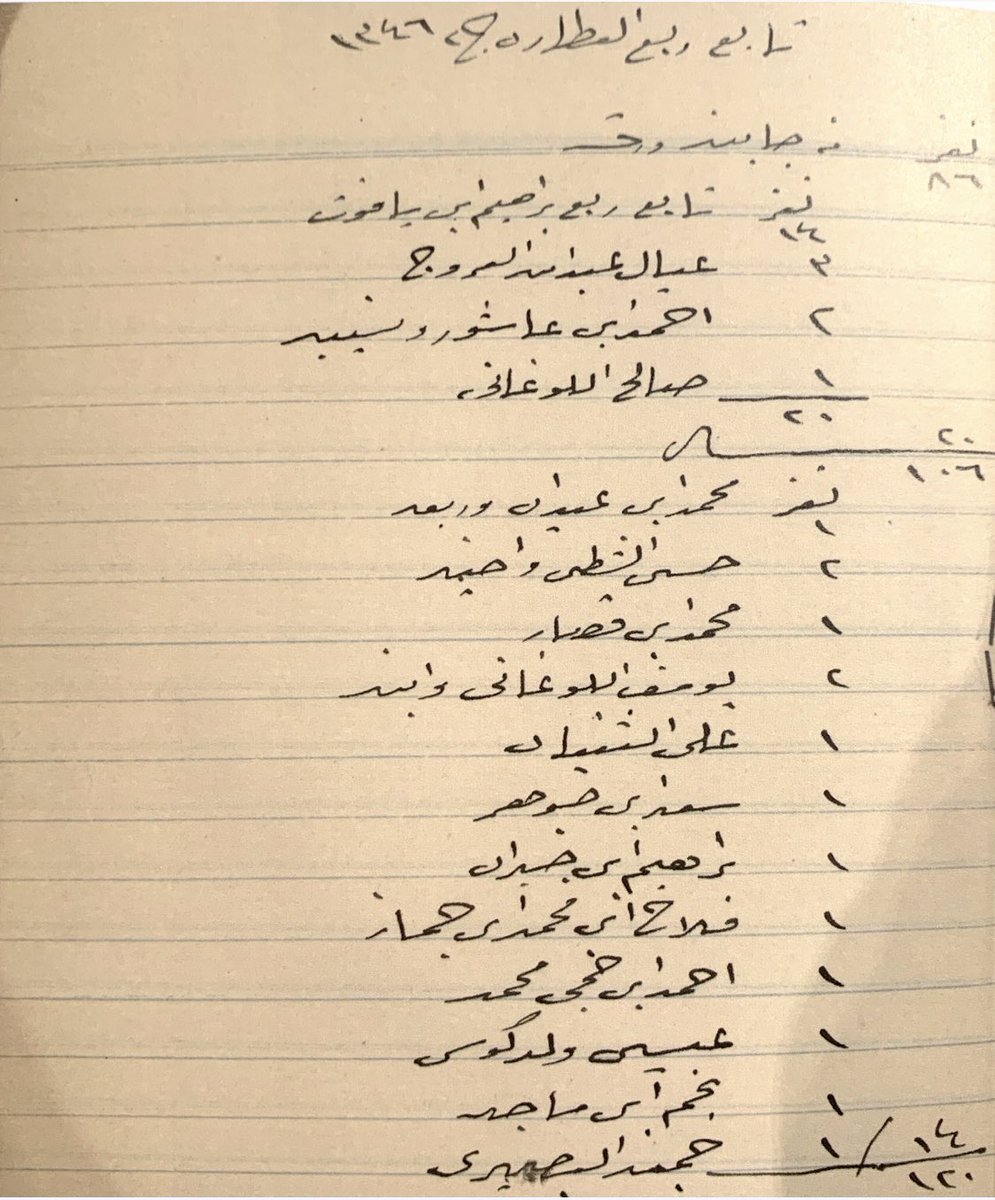 تابع ربع العطاره ج٢ ١٣٤٦
نفر ٨٦ من جانب ورقه
نفر ١٤ تابع ربع براهيم ابن ياقوت
٣ عيال عبدالله العروج
٢ احمد ابن عاشور ونسيبه
١ صالح اللوغاني
٢٠
٢٠
١٠٦
نفر ١ محمد ابن عبيدان وربعه
٢ حسن الشطي واخيه
١ محمد ابن قصار
٢ يوسف اللوغاني وابنه
١ علي الشنيان
١ سعد ابن جوهر
١ براهيم ابن جبران
١ فلاح اخي محمد ابن جماز
١ احمد ابن حجي محمد
١ عيسى ولد كوس
١ نجم ابن ماجد
١ حمد البصيري
١٤
١٢٠